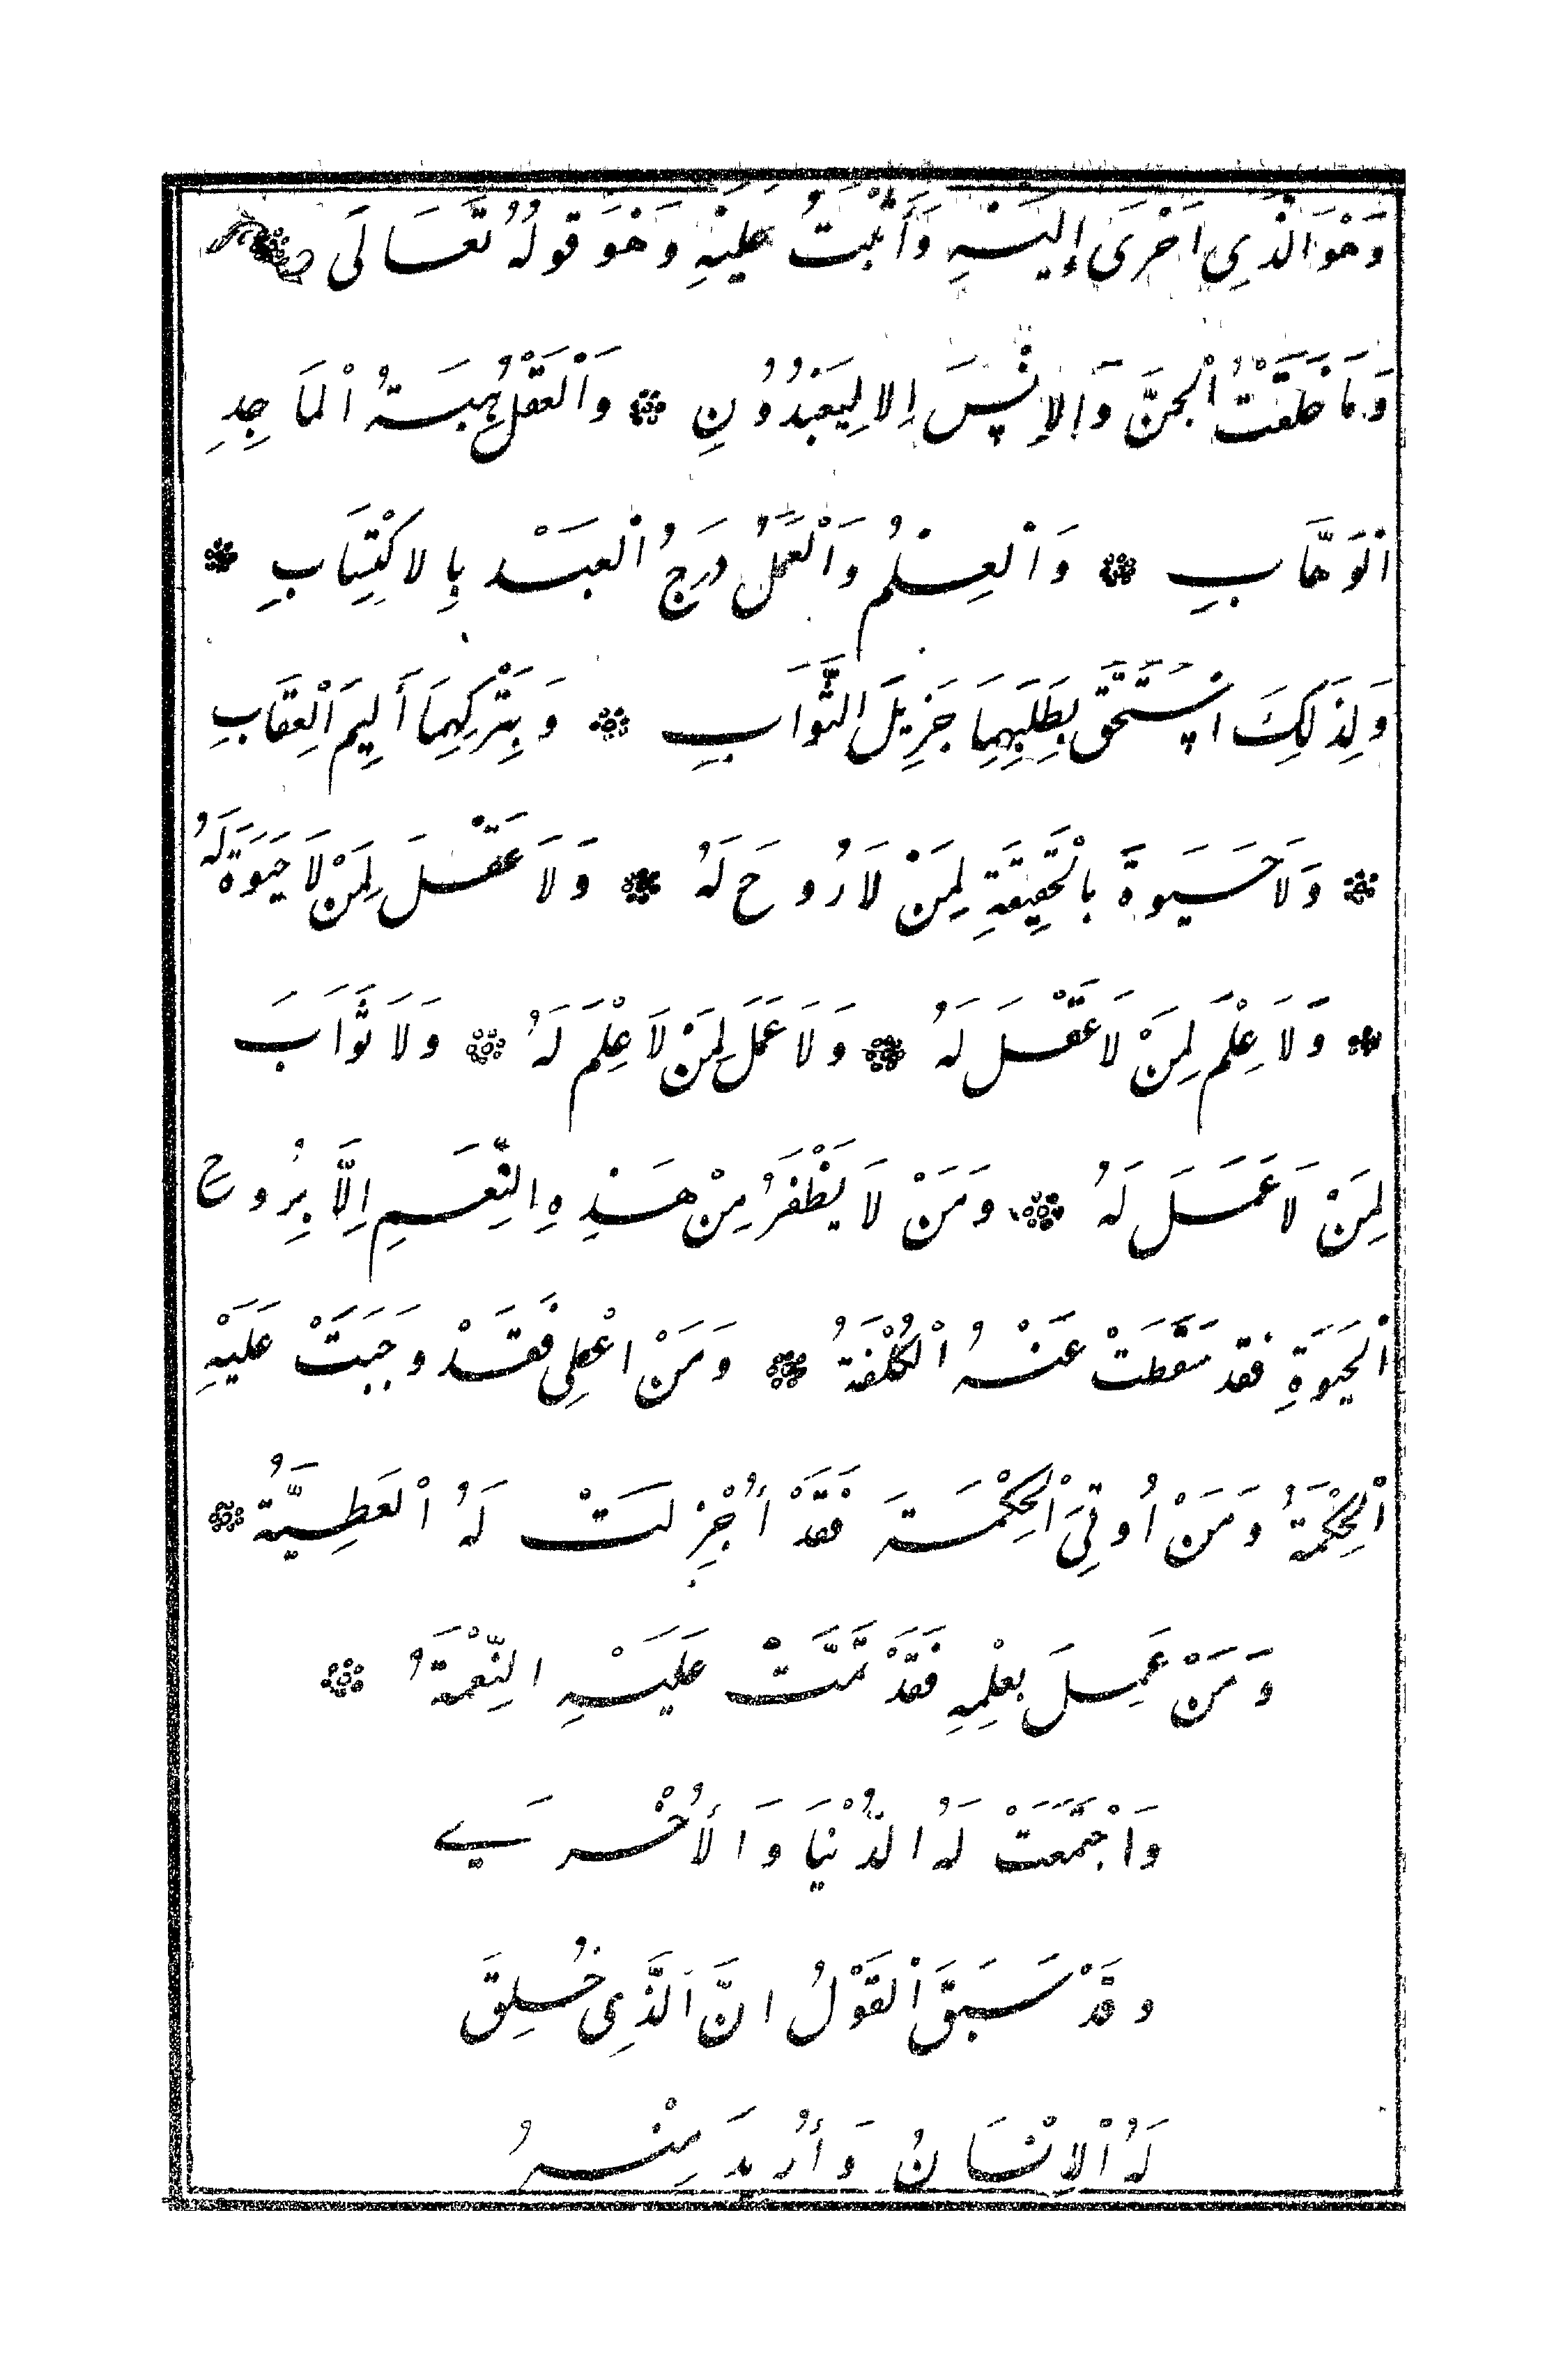 وَهُوَ الَّذِي أَجْرَى إِلَيْهِ وَأَثْبَتُ عَلَيْهِ وَهُوَ قَوْلُهُ تَعَالَى
وَمَا خَلَقْتُ الْجِنَّ وَالْإِنْسَ اِلا لِيَعْبُدُوْنِ ۞ وَالْعَقْلُ هِبَةُ الْمَاجِدِ
الْوَهَّابِ ۞ وَالْعِلْمُ وَالْعَمَلُ دَرَجُ الْعَبْد بِالاكْتِسَابِ ۞
وَلِذَلِكَ اسْتَحَقَّ بِطَلَبِهِمَا جَزِيلَ الثَّوَابِ ۞ وَبِتَرْكِهِمَا أَلِيمَ الْعِقَابِ
۞ وَلَا حَيَوةَ بِالْحَقِيقَةِ لِمَنْ لَا رُوحَ لَهُ ۞ وَلَا عَقْلَ لِمَنْ لَا حَيَوَةَ لَهُ
۞ وَلَا عِلْمَ لِمَنْ لَا عَقْلَ لَهُ ۞ وَلَا عَمَلَ لِمَنْ لَا عِلْمَ لَهُ ۞ وَلَا ثَوَابَ
لِمَنْ لَا عَمَلَ لَهُ ۞ وَمَنْ لَا يَظْفَرُ مِنْ هَذِهِ النِّعَمِ اِلَّا بِرُوحِ
الْحَيَوَةِ فقد سَقَطَتْ عَنْهُ الْكُلْفَةُ ۞ وَمَنْ اعْطِى فَقَدْ وَجَبَتْ عَلَيْهِ
الْحِكْمَةُ وَمَنْ اُوتِيَ الْحِكْمَةَ فَقَدْ أُجْزِلَتْ لَهُ الْعَطِيَّةُ ۞
وَمَنْ عَمِلَ بِعِلْمِهِ فَقَدْ تَمَّتْ عَلَيْهِ النِّعْمَةُ ۞
وَاجْتَمَعَتْ لَهُ الدُّنْيَا وَالأُخْرَى
وقَدْ سَبَقَ الْقَوْلُ انَّ الَّذِي خُلِقَ
لَهُ الْاِنْسَانُ وَأُرِيدَ مِنْهُ